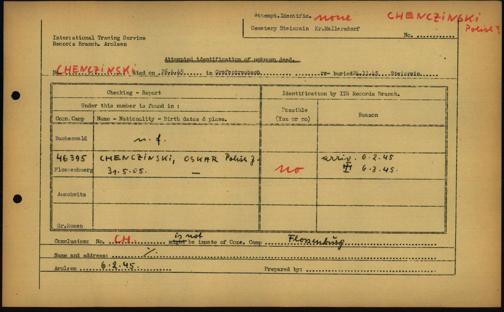 Attempt.Identific. none CHENCZINSKI
Cemetery Steinrain Kr.Mallersdorf Polish J.
No.
International Tracing Service
Records Branch, Arolsen
Attempted identification of unknown dead.
No. CHENCZINSKI died on in re-buried Steinrain.
Checking - Report
Identification by ITS Records Branch.
Under this number is found in :
Possible
(Yes or no)
Reason
Conc.Camp Name - Nationality - Birth dates & place.
Buchenwald n.f.
46395 CHENCZINSKI, OSKAR Polish J. arriv. 6.2.45
Flossenbuerg 31.5.05. — no 6.3.45.
Auschwitz
Gr.Rosen
is not
Conclusions: No. CH. might be inmate of Conc. Camp Flossenbürg
Name and address:
Arolsen 6.2.45. Prepared by: